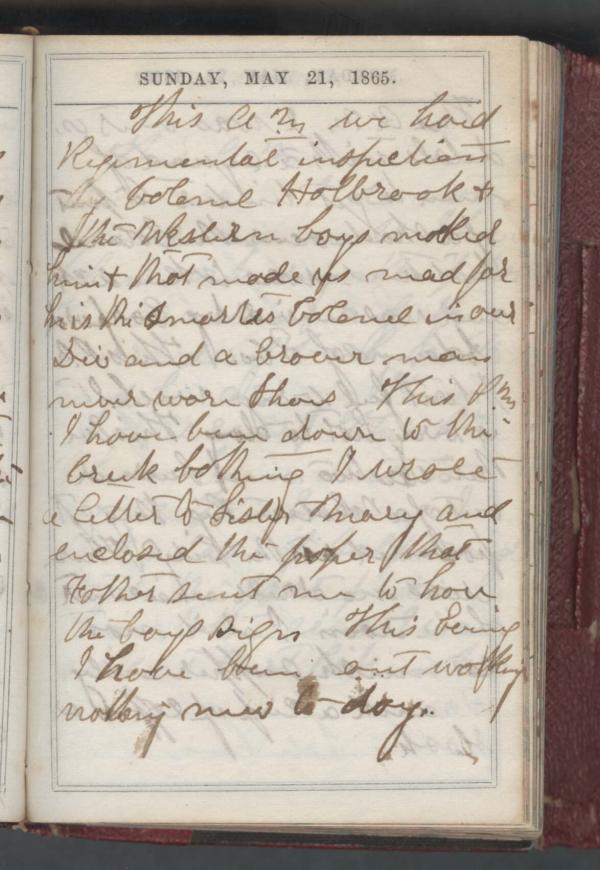 SUNDAY, MAY 21, 1865.
This A M we haid
Regimental inspection
by Colonel Holbrook &
the Western boys mocked
him & that made us mad for
his the smartes Colonel in our
Div and a braver man
never wore shoes This P M
I have been down to the
creek bathing I wrote
a letter to Sister Mary and
enclosed the paper that
Father sent me to have
the boys sign This Evning
I have been out walking
nothing new to day.